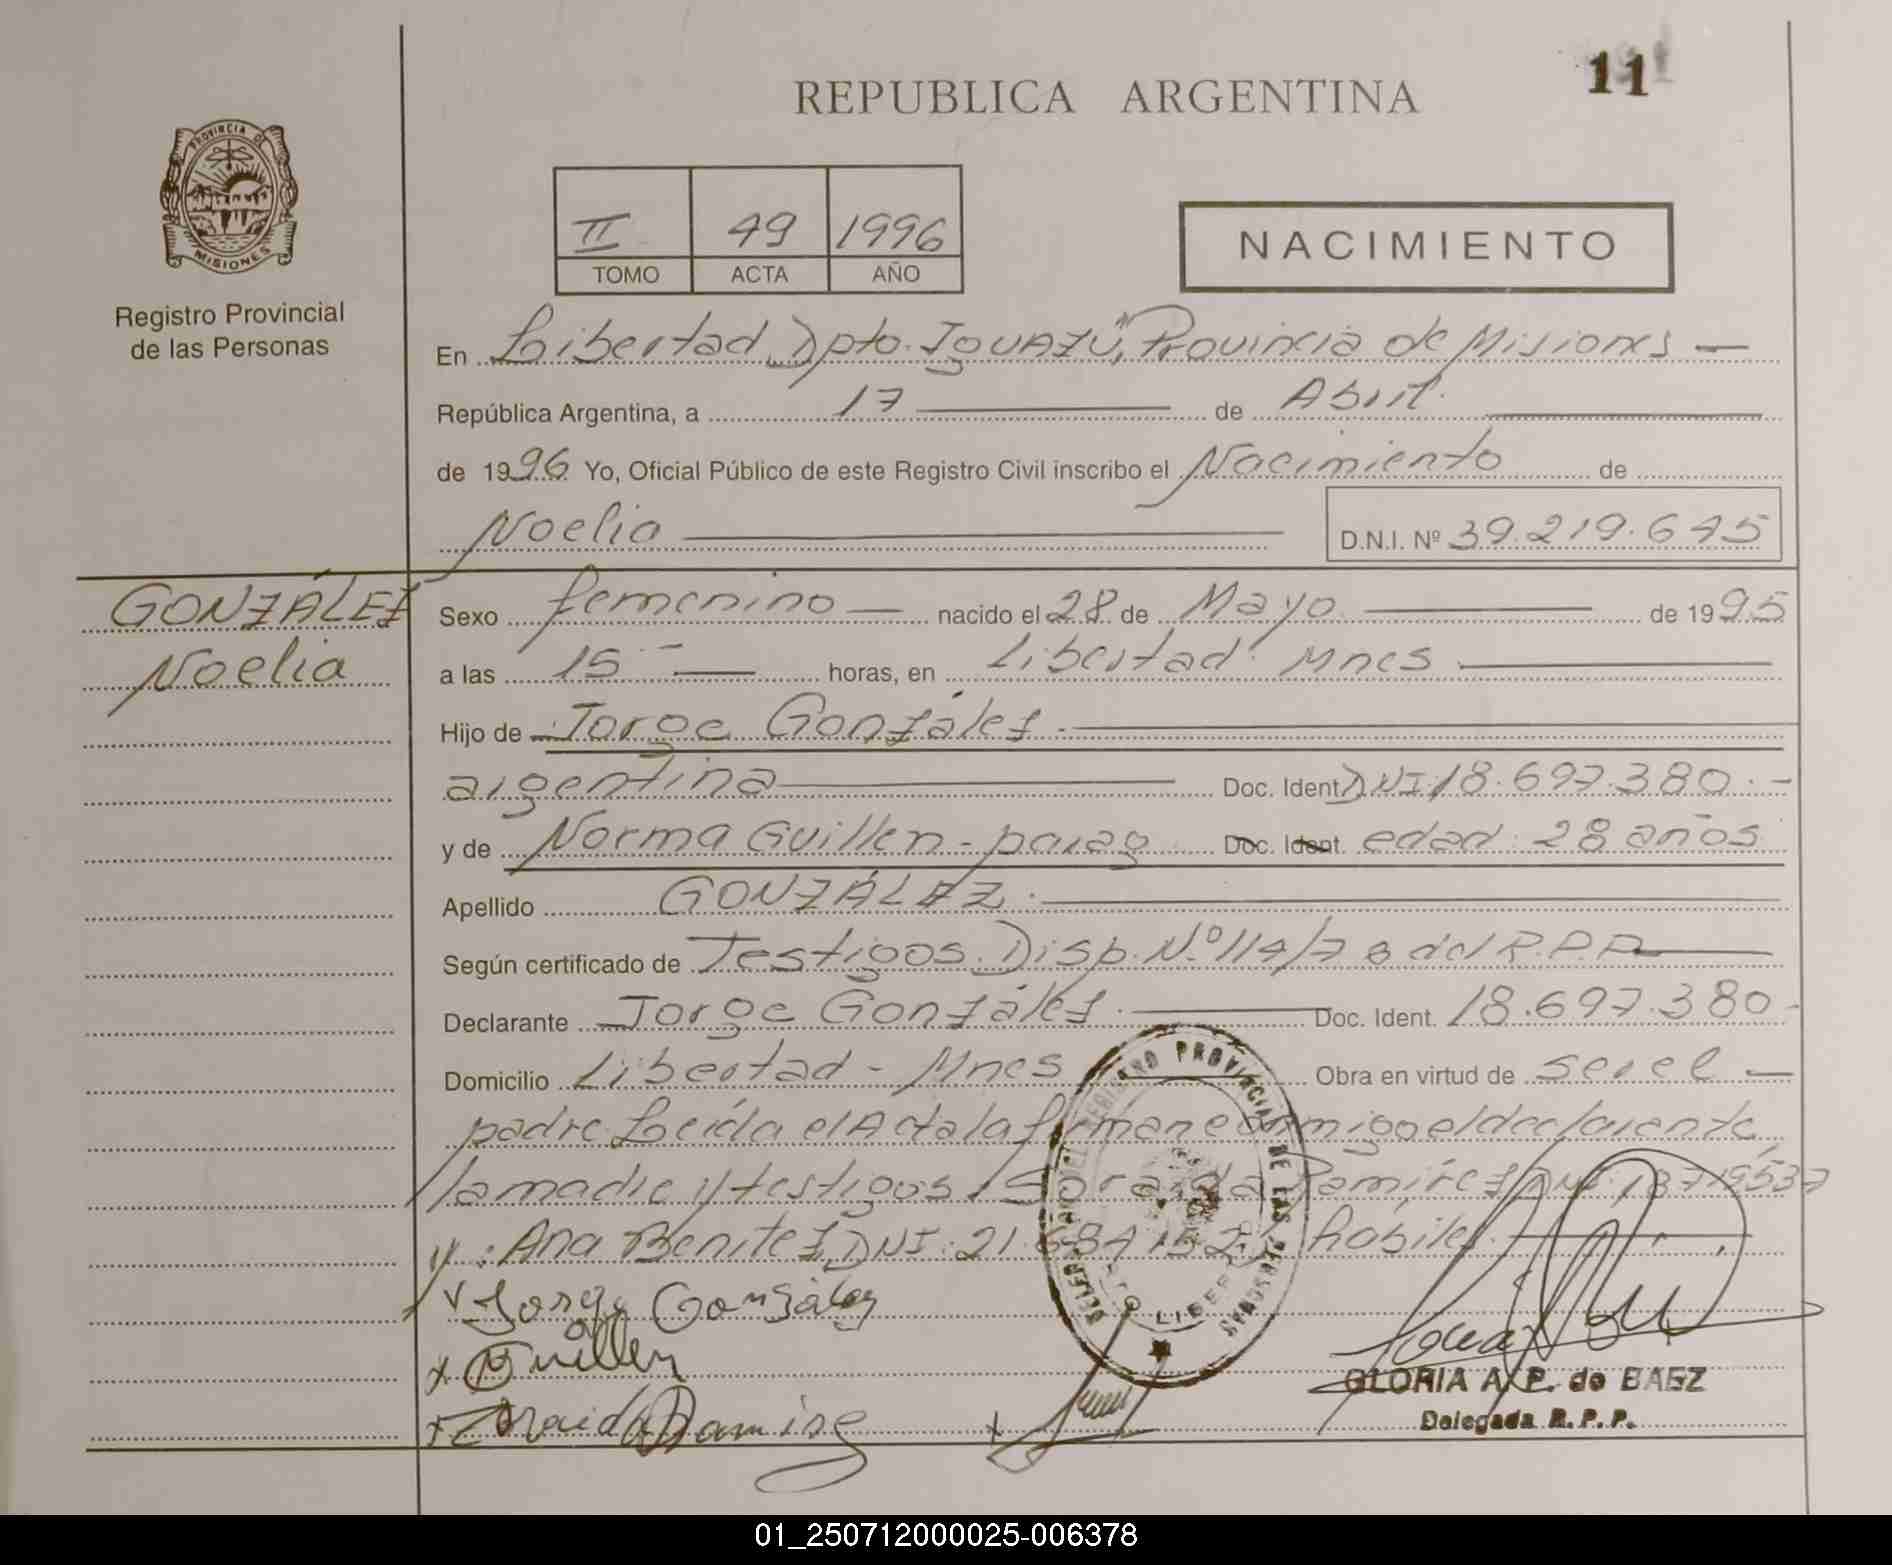 11
REPUBLICA ARGENTINA
PROVINCIA DE
MISIONES
Registro Provincial
de las Personas
II 49 1996
TOMO ACTA AÑO
NACIMIENTO
En Libertad, Dpto. IGUAZÚ, Provincia de Misiones —
República Argentina, a 17 — de Abril. —
de 1996 Yo, Oficial Público de este Registro Civil inscribo el Nacimiento de
Noelia — D.N.I. Nº 39.219.645
GONZÁLEZ
Noelia
Sexo femenino — nacido el 28 de Mayo — de 1995
a las 15 — horas, en Libertad. Mnes —
Hijo de Jorge González. —
argentina — Doc. Ident DNI:18.697.380.-
y de Norma Guillen - parag Doc. Ident. edad: 28 años
Apellido GONZÁLEZ. —
Según certificado de Testigos. Disp. Nº 114/78 del R.P.P. —
Declarante Jorge González. — Doc. Ident. 18.697.380-
Domicilio Libertad - Mnes Obra en virtud de ser el —
padre. Leída el Acta la firman conmigo el declarante,
la madre y testigos: Ramírez DNI: 13719537
y: Ana Benitez, DNI: 21 hábiles —
PROVINCIAL DE LAS PERSONAS
LIBER
x Jorge González
x Guillen
x Zoraida Ramirez
x
GLORIA A. P. de BAEZ
Delegada R. P. P.
01_250712000025-006378